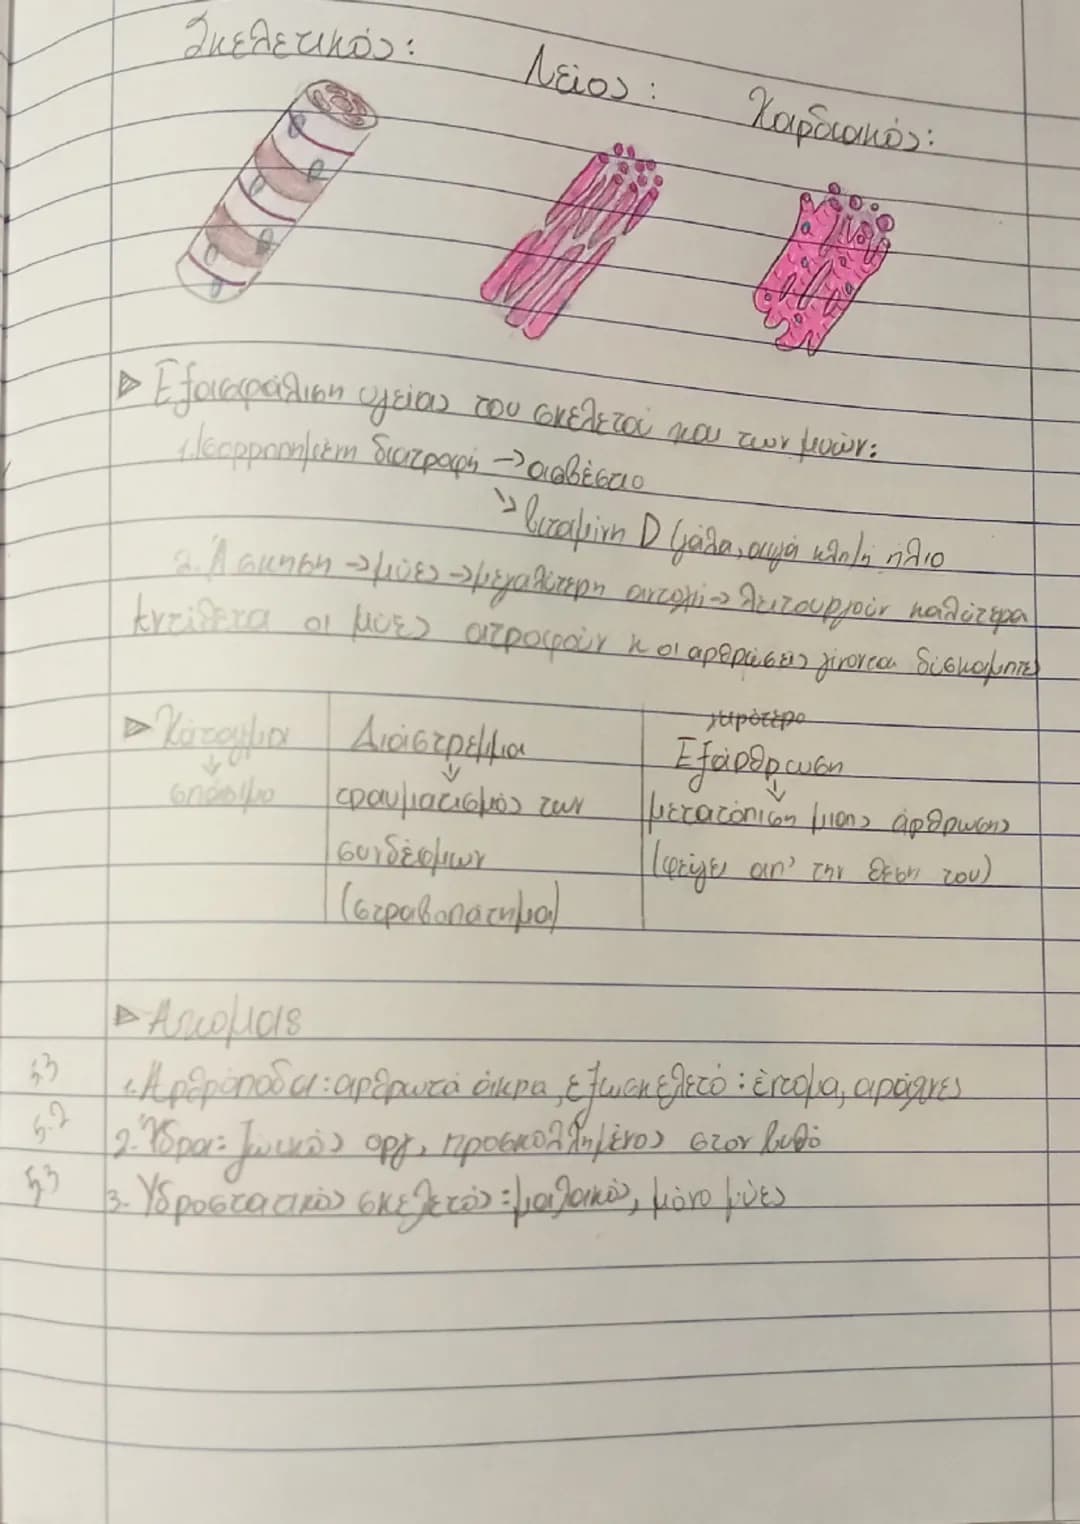 Σκελετικός:
Λείος:
Καρδιακός:
▷ Εξασφάλιση υγείας του σκελετού και των μυών:
1. Ισορροπημένη διατροφή → ασβέστιο
↘ βιταμίνη D (γάλα, αυγά κλπ) ή ήλιο
2. Άσκηση → μύες → μεγαλύτερη αντοχή → λειτουργούν καλύτερα
Αντίθετα οι μύες ατροφούν κ οι αρθρώσεις γίνονται δύσκαμπτες
▷ Κάταγμα
↓
σπάσιμο
Διάστρεμμα
↓
τραυματισμός των
συνδέσμων
(στραβοπάτημα)
χειρότερο
Εξάρθρωση
↓
μετατόπιση μιας άρθρωσης
(φεύγει απ' την θέση του)
5.3
1. Αρθρόποδα: αρθρωτά άκρα, εξωσκελετό: έντομα, αράχνες
5.2
2. Ύδρα: ζωικός οργ, προσκολλημένος στον βυθό
5.3
3. Υδροστατικός σκελετός: μαλακός, μόνο μύες